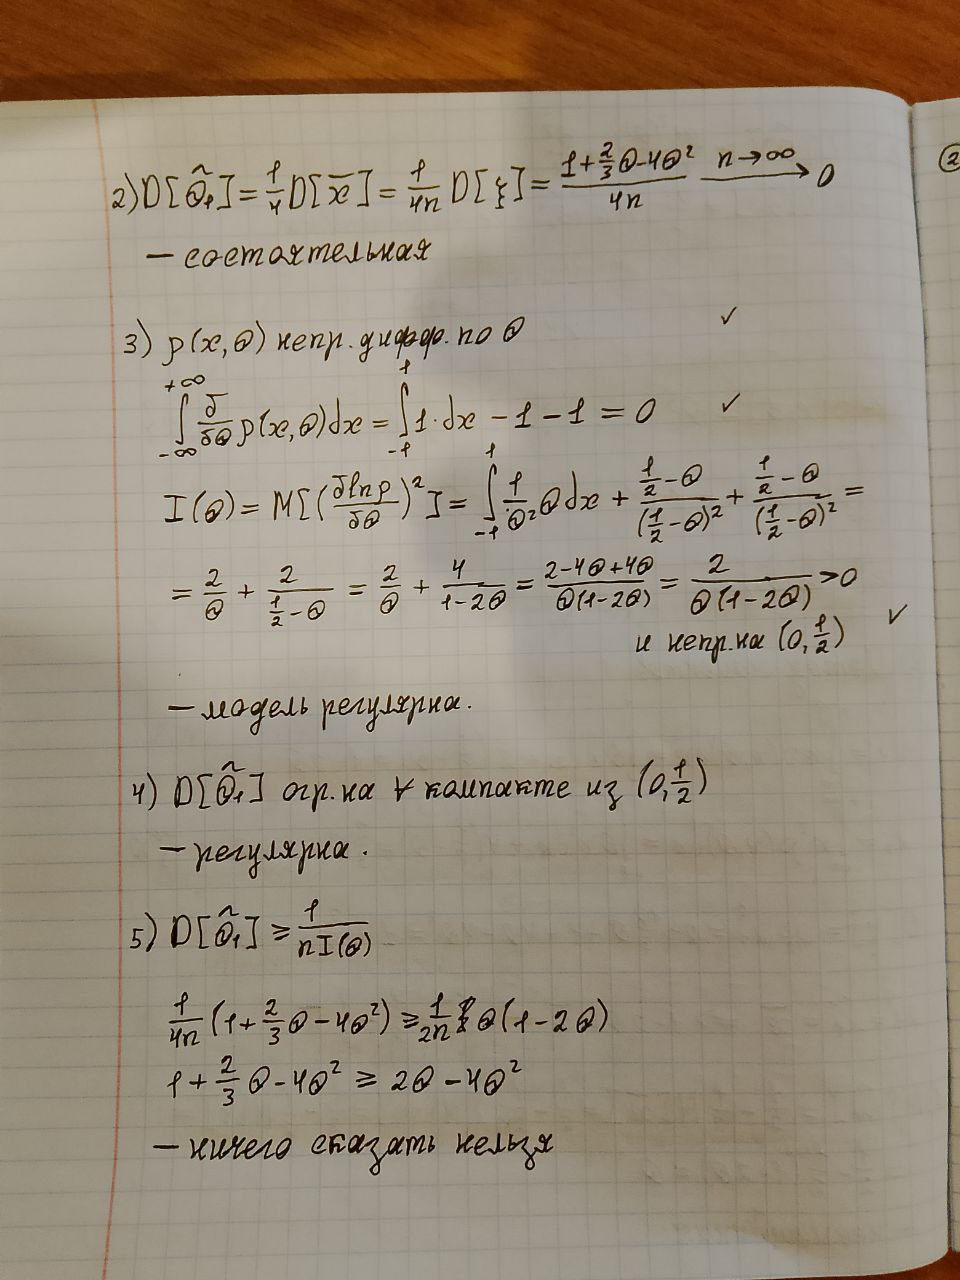 2) D[θ̃₁] = 1/4 D[x̄] = 1/4n D[ξ] = (1 + 2/3 θ - 4θ²)/4n n→∞ → 0
— состоятельная
3) p(x, θ) непр. дифф. по θ ✓
∫_{-∞}^{+∞} δ/δθ p(x, θ)dx = ∫_{-1}^{1} 1·dx - 1 - 1 = 0 ✓
I(θ) = M[(δlnp/δθ)²] = ∫_{-1}^{1} 1/θ² θ dx + (1/2 - θ)/(1/2 - θ)² + (1/2 - θ)/(1/2 - θ)² =
= 2/θ + 2/(1/2 - θ) = 2/θ + 4/(1 - 2θ) = (2 - 4θ + 4θ)/(θ(1 - 2θ)) = 2/(θ(1 - 2θ)) > 0
и непр. на (0, 1/2) ✓
— модель регулярна.
4) D[θ̃₁] огр. на ∀ компакте из (0, 1/2)
— регулярна.
5) D[θ̃₁] ≥ 1/(nI(θ))
1/4n (1 + 2/3 θ - 4θ²) ≥ 1/2n θ(1 - 2θ)
1 + 2/3 θ - 4θ² ≥ 2θ - 4θ²
— ничего сказать нельзя
②